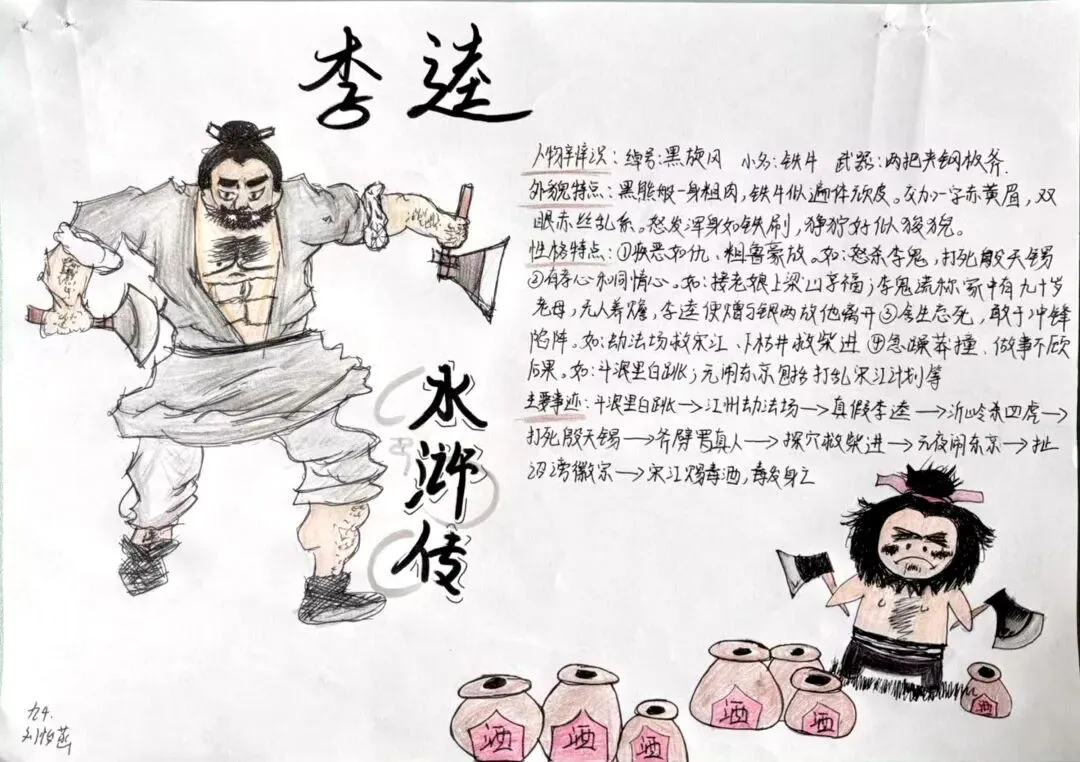 李逵
人物辨识：绰号：黑旋风 小名：铁牛 武器：两把夹钢板斧.
外貌特点：黑熊般一身粗肉，铁牛似遍体顽皮。交加一字赤黄眉，双
眼赤丝乱系。怒发浑身如铁刷，狰狞好似狻猊。
性格特点：①疾恶如仇、粗鲁豪放。如：怒杀李鬼，打死殷天锡
②有孝心和同情心。如：接老娘上梁山享福；李鬼谎称家中有九十岁
老母，无人养赡，李逵便赠与银两放他离开③舍生忘死，敢于冲锋
陷阵。如：劫法场救宋江、下枯井救柴进④急躁莽撞、做事不顾
后果。如：斗浪里白跳；元闹东京包括打乱宋江计划等
主要事迹：斗浪里白跳→江州劫法场→真假李逵→沂岭杀四虎→
打死殷天锡→斧劈罗真人→探穴救柴进→元夜闹东京→扯
诏谤徽宗→宋江赐毒酒，毒发身亡
水浒传
酒
酒
酒
酒
酒
酒
九4.
刘